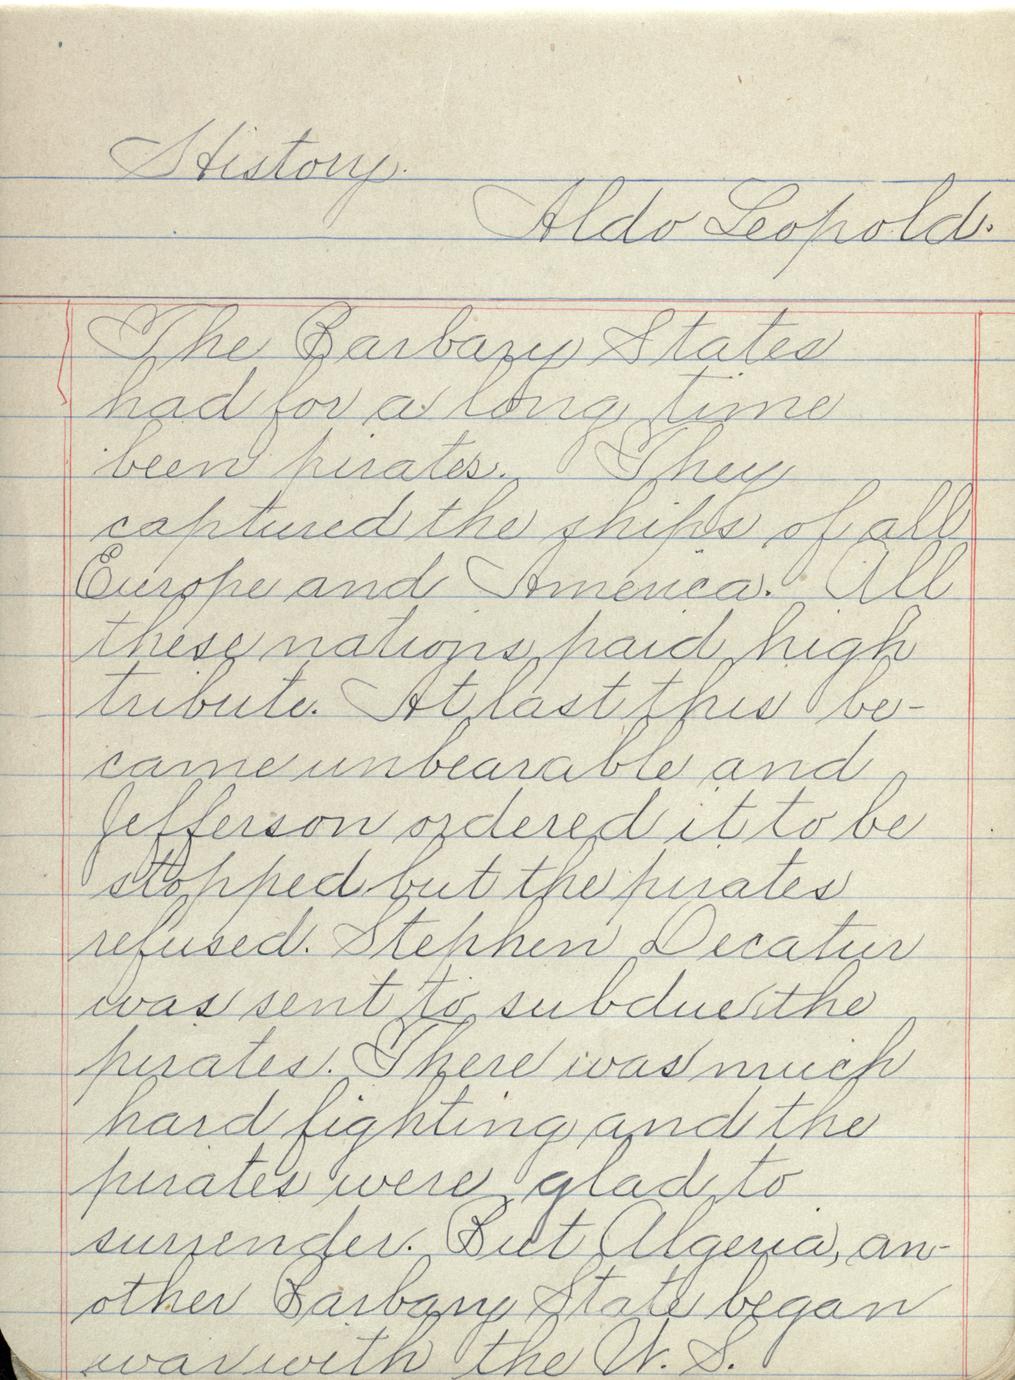 History.
Aldo Leopold.
The Barbary States
had for a long time
been pirates. They
captured the ships of all
Europe and America. All
these nations paid high
tribute. At last this be-
came unbearable and
Jefferson ordered it to be
stopped but the pirates
refused. Stephen Decatur
was sent to subdue the
pirates. There was much
hard fighting and the
pirates were glad to
surrender. But Algeria, an-
other Barbary State began
war with the U. S.